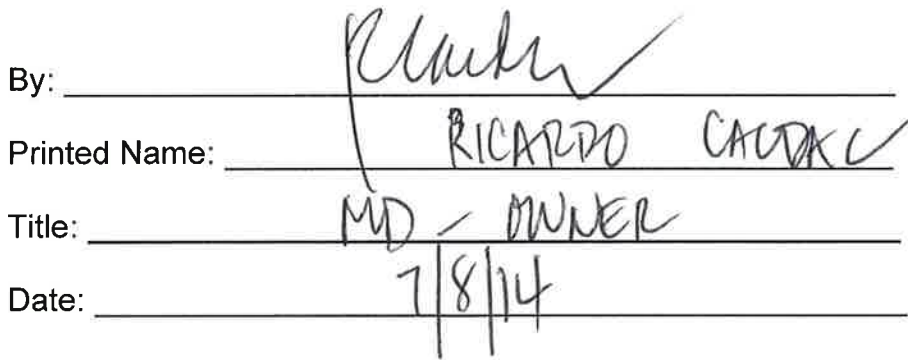 By:
Printed Name: RICARDO
Title: MD - OWNER
Date: 7/8/14